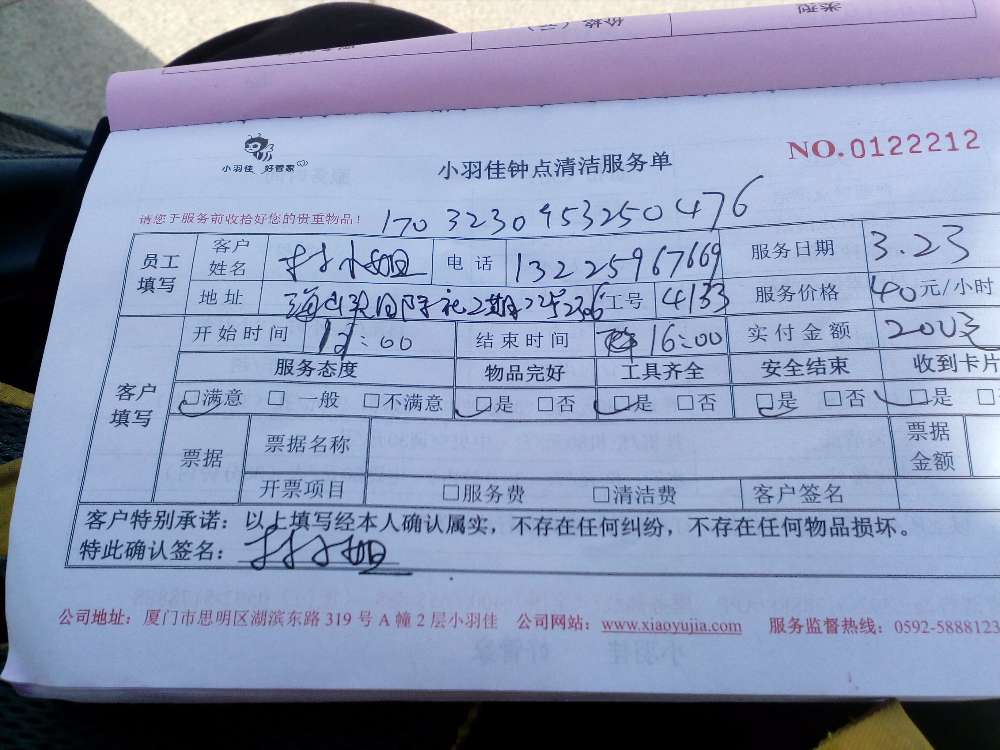 类型
价格(元)
小羽佳 好管家
小羽佳钟点清洁服务单
NO.0122212
请您于服务前收拾好您的贵重物品！
1703230953250476
员工填写 客户姓名 林小姐 电话 13225967669 服务日期 3.23
地址 2期 工号 4133 服务价格 40元/小时
客户填写 开始时间 :00 结束时间 16:00 实付金额 200
服务态度 物品完好 工具齐全 安全结束 收到卡片
□满意 □一般 □不满意 □是 □否 □是 □否 □是 □否 □是
票据 票据名称 票据金额
开票项目 □服务费 □清洁费 客户签名
客户特别承诺：以上填写经本人确认属实，不存在任何纠纷，不存在任何物品损坏。
特此确认签名：林小姐
公司地址：厦门市思明区湖滨东路 319 号 A 幢 2 层小羽佳 公司网站：www.xiaoyujia.com 服务监督热线：0592-5888123
小羽佳 好管家